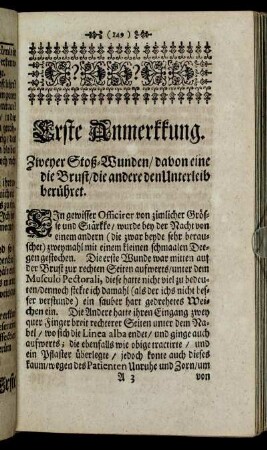 ( 249 )
Erste Anmerkkung.
Zweyer Stoß-Wunden / davon eine
die Brust / die andere den Unterleib
berühret.
EIn gewisser Officirer von zimlicher Grös-
se und Stärkke / wurde bey der Nacht von
einem andern (die zwar beyde sehr berau-
schet) zweymahl mit einem kleinen schmaalen De-
gen gestochen. Die erste Wunde war mitten auf
der Brust zur rechten Seiten aufwerts / unter dem
Musculo Pectorali, diese hatte nicht viel zu bedeu-
ten / dennoch stekte ich damahl (als der ichs nicht bes-
ser verstunde) ein sauber hart gedrehetes Wei-
chen ein. Die Andere hatte ihren Eingang zwey
quer Finger breit rechterer Seiten unter dem Na-
bel / wo sich die Linea alba endet / und ginge auch
aufwerts; die ebenfalls wie obige tractirte / und
ein Pflaster überlegte / jedoch konte auch dieses
kaum / wegen des Patienten Unruhe und Zorn / um
A 3 von